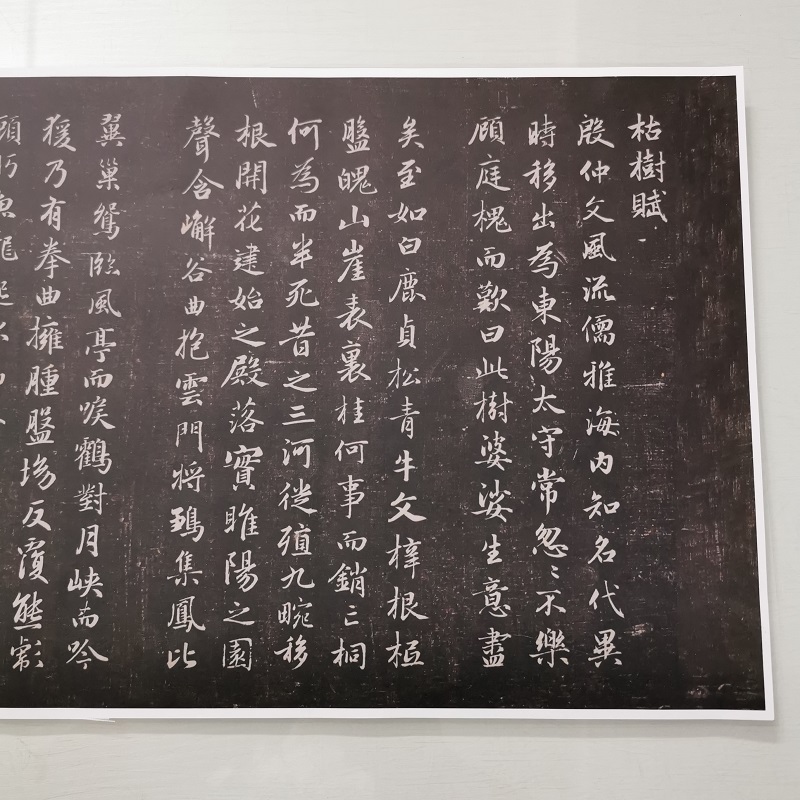 枯樹賦
殷仲文風流儒雅海内知名代異
時移出為東陽太守常忽〻不樂
顧庭槐而歎曰此樹婆娑生意盡
矣至如白鹿貞松青牛文梓根柢
盤魄山崖表裏桂何事而銷亡桐
何為而半死昔之三河徙殖九畹移
根開花建始之殿落實睢陽之園
聲含嶰谷曲抱雲門將鶵集鳳比
翼巢鴛臨風亭而唳鶴對月峽而吟
猨乃有拳曲擁腫盤坳反覆熊彪